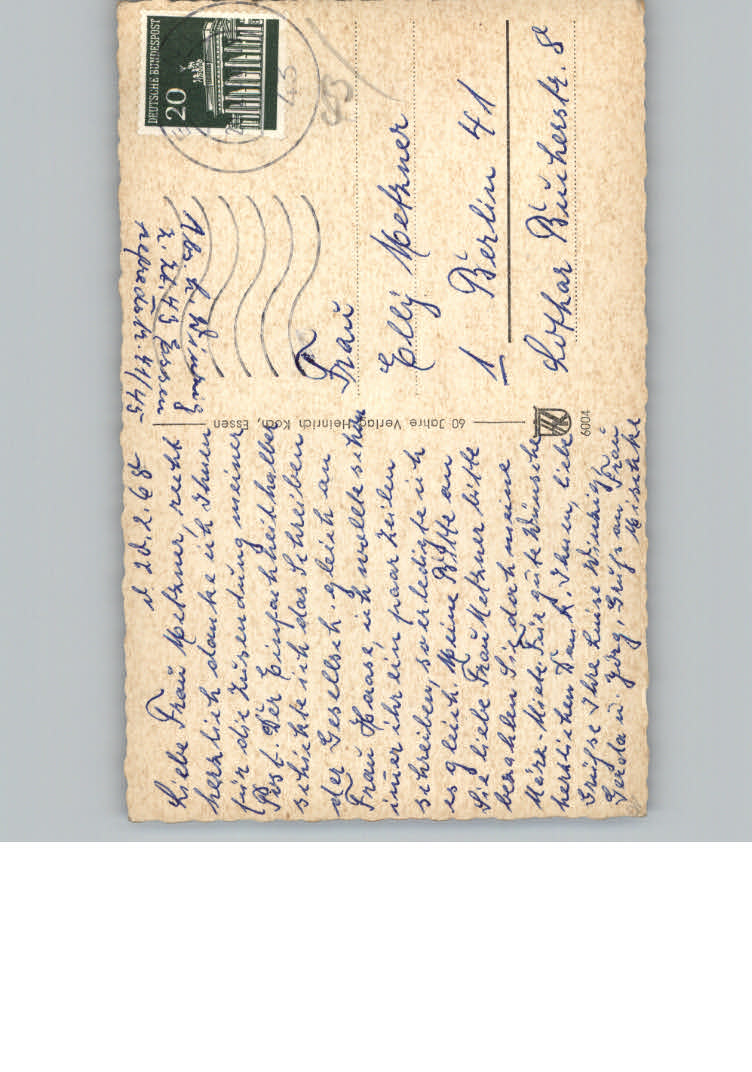 d 20.2.68
Liebe Frau Metzner, recht
herzlich danke ich Ihnen
für die Zusendung meiner
Post. Der Einfachheit halber
schickte ich das Schreiben
der Gesellsch. gleich an
Frau Haase, ich wollte schon
imer ihr ein paar Zeilen
schreiben, so erledigte ich
es gleich. Meine Bitte an
Sie liebe Frau Metzner bitte
bezahlen Sie doch meine
März-Miete. Für gute Wünsche
herzlichen Dank. Ihnen, liebe
Grüsse Ihre Luise
Gerda u. Jörg, Grüß an Frau
Abs. L.
z. Zt. 43 Essen
41/45
DEUTSCHE BUNDESPOST
20
43
Frau
Elly Metzner
1 Berlin 41
Lothar Bucherstr. 8
60 Jahre Verlag Heinrich Koch, Essen
6004